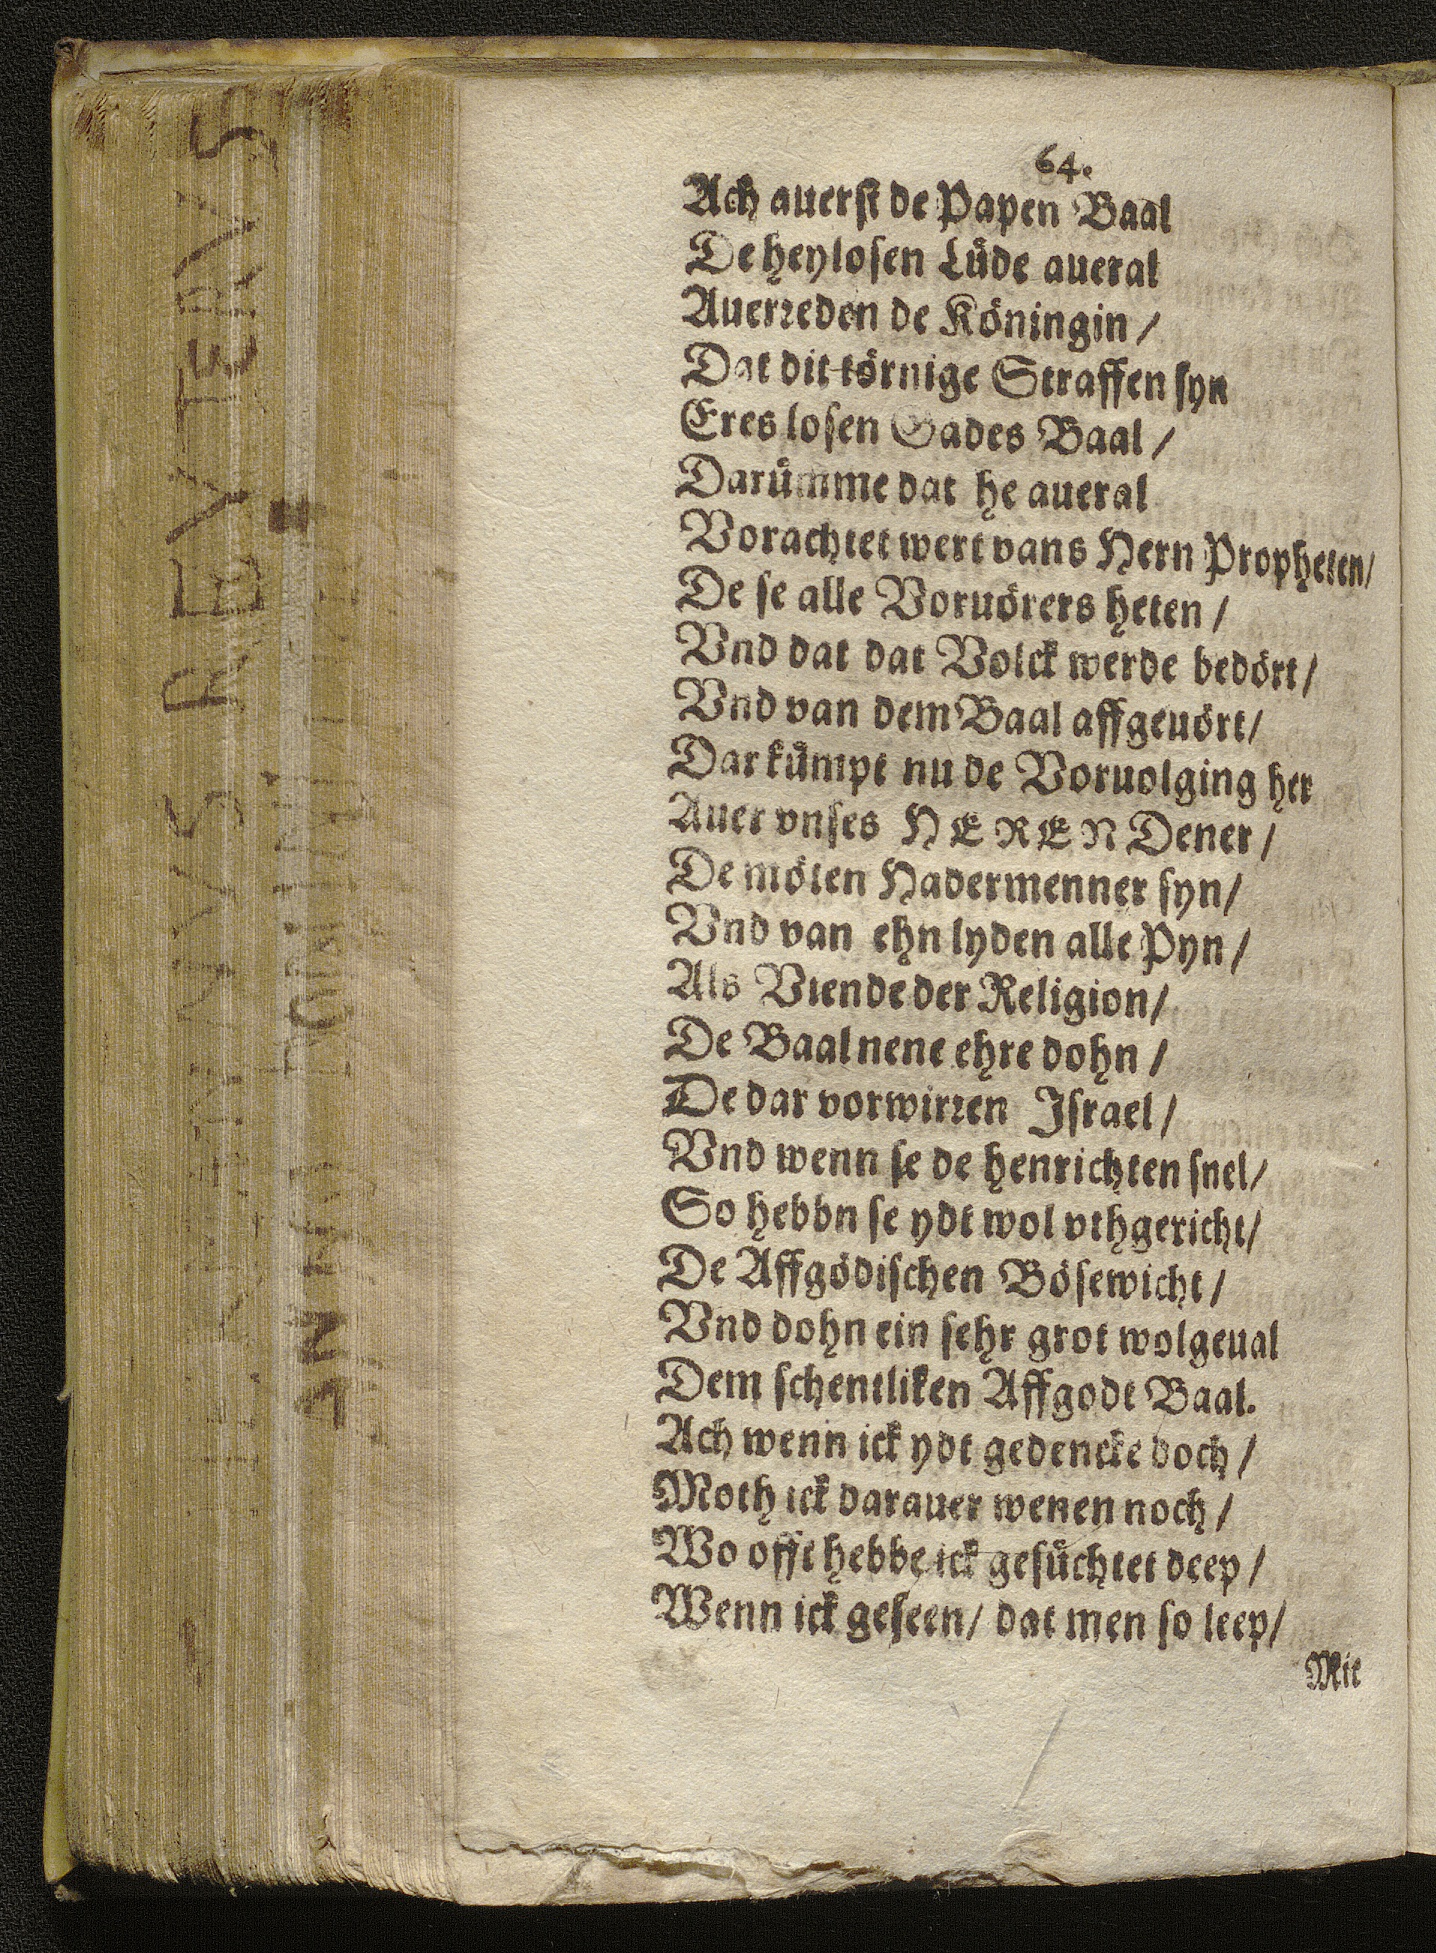 64.
Ach auerſt de Papen Baal
De heyloſen Luͤde aueral
Auerꝛeden de Koͤningin /
Dat dit toͤrnige Straffen ſyn
Eres loſen Gades Baal /
Daruͤmme dat he aueral
Vorachtet wert vans Hern Propheten/
De ſe alle Voruoͤrers heten /
Vnd dat dat Volck werde bedoͤrt /
Vnd van dem Baal affgeuoͤrt /
Dar kuͤmpt nu de Voruolging her
Auer vnſes HEREN Dener /
De moͤten Hadermenner ſyn /
Vnd van ehn lyden alle Pyn /
Als Viende der Religion /
De Baal nene ehre dohn /
De dar vorwirꝛen Iſrael /
Vnd wenn ſe de henrichten ſnel /
So hebbn ſe ydt wol vthgericht /
De Affgoͤdiſchen Boͤſewicht /
Vnd dohn ein ſehr grot wolgeual
Dem ſchentliken Affgodt Baal.
Ach wenn ick ydt gedencke doch /
Moth ick darauer wenen noch /
Wo offt hebbe ick geſuͤchtet deep /
Wenn ick geſeen / dat men ſo leep /
Mit
REVTERVS
ANNO DOMINI